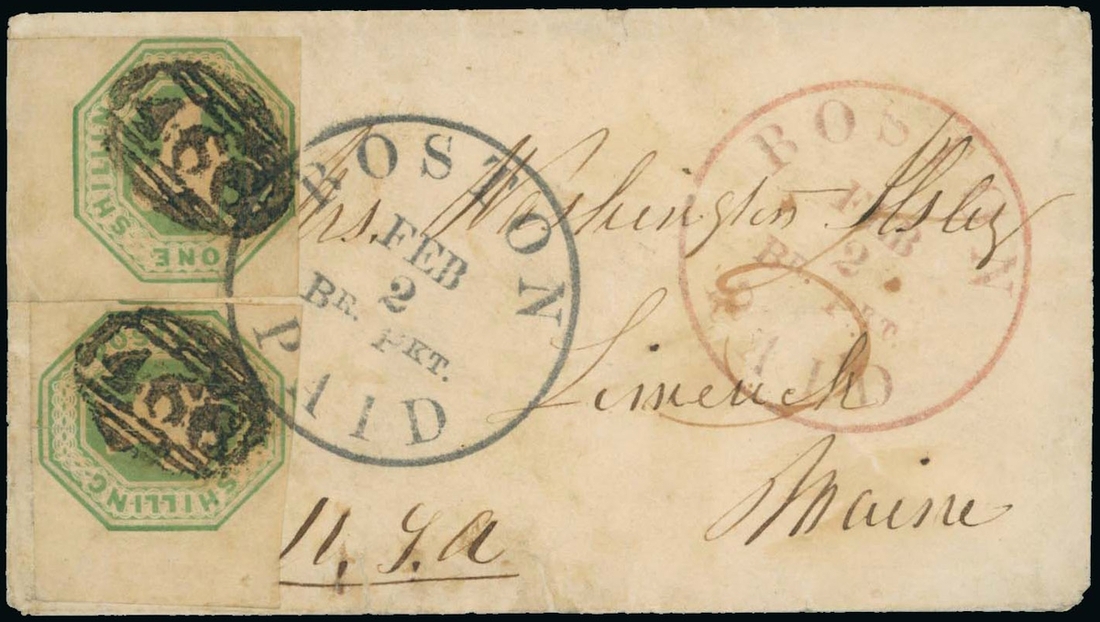 ONE SHILLING
ONE SHILLING
466
466
BOSTON
FEB
2
BR. PKT.
PAID
BOSTON
FEB
2
BR. PKT.
PAID
Mrs. Washington Ilsley
Limerick
Maine
U. S. A